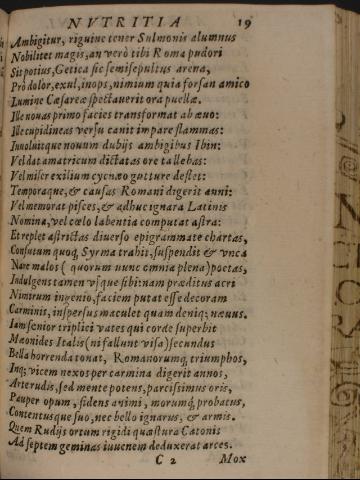 NVTRITIA 19
Ambigitur, riguine tener Sulmonis alumnus
Nobilitet magis, an verò tibi Roma pudori
Sit potius, Getica sic semisepultus arena,
Prò dolor, exul, inops, nimium quia forsan amico
Lumine Cæsareæ spectauerit ora puellæ.
Ille nouas primo facies transformat ab æuo:
Ille cupidineas versu canit impare flammas:
Inuoluitque nouum dubijs ambigibus Ibin:
Vel dat amatricum dictatas ore tabellas:
Vel miser exilium cycnæo gutture deflet:
Temporaque, & causas Romani digerit anni:
Vel memorat pisces, & adhuc ignara Latinis
Nomina, vel cœlo labentia computat astra:
Et replet astrictas diuerso epigrammate chartas,
Consutum quoq; Syrma trahit, suspendit & vnca
Nare malos ( quorum nunc omnia plena) poetas,
Indulgens tamen vsque sibi: nam præditus acri
Nimirum ingenio, faciem putat esse decoram
Carminis, inspersus maculet quam deniq; næuus.
Iam senior triplici vates qui corde superbit
Mæonides Italis (ni fallunt visa) secundus
Bella horrenda tonat, Romanorumq; triumphos,
Inq; vicem nexos per carmina digerit annos,
Arte rudis, sed mente potens, parcissimus oris,
Pauper opum, fidens animi, morumq; probatus,
Contentusque suo, nec bello ignarus, & armis.
Quem Rudijs ortum rigidi quæstura Catonis
Ad septem geminas iuuenem deduxerat arces.
C 2 Mox